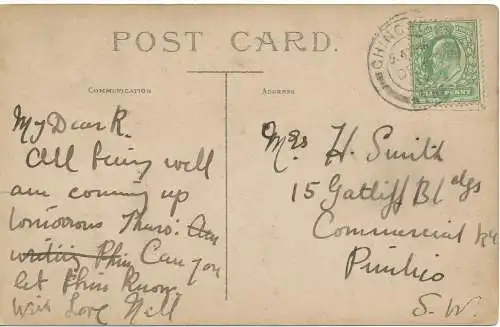 POST CARD.
COMMUNICATION
ADDRESS
CHING
HALFPENNY
My Dear R.
All being well
am coming up
tomorrow Thurs. Am
writing Phin Can you
let Phin know.
With Love Nell
Mrs H. Smith
15 Gatliff Bldgs
Commercial Rd
Pimlico
S.W.